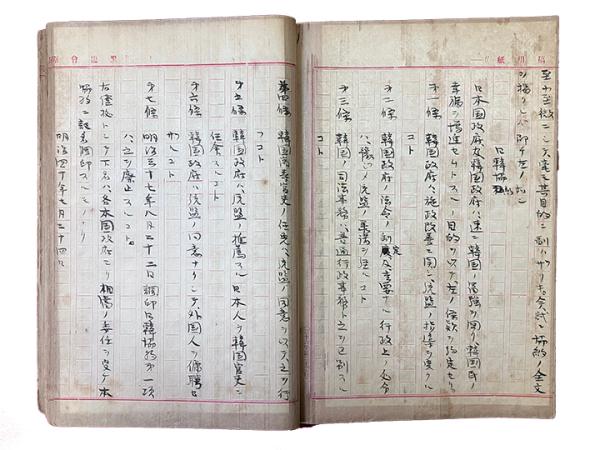 日韓協約
日本国政府及韓国政府ハ速ニ韓国ノ富強ヲ図リ韓国民ノ
幸福ヲ増進セムトスルノ目的ヲ以テ左ノ條款ヲ約定セリ
第一條 韓国政府ハ施政改善ニ関シ統監ノ指導ヲ受クル
コト
第二條 韓国政府ノ法令ノ制定及重要ナル行政上ノ処分
ハ予メ統監ノ承認ヲ経ルコト
第三條 韓国ノ司法事務ハ普通行政事務ト之ヲ区別スル
コト
第四條 韓国高等官吏ノ任免ハ統監ノ同意ヲ以テ之ヲ行
フコト
第五條 韓国政府ハ統監ノ推薦スル日本人ヲ韓国官吏ニ
任命スルコト
第六條 韓国政府ハ統監ノ同意ナクシテ外国人ヲ傭聘セ
サルコト
第七條 明治三十七年八月二十二日調印日韓協約第一項
ハ之ヲ廃止スルコト
右證拠トシテ下名ハ各本国政府ヨリ相当ノ委任ヲ受ケ本
協約ニ記名調印スルモノナリ
明治四十年七月二十四日